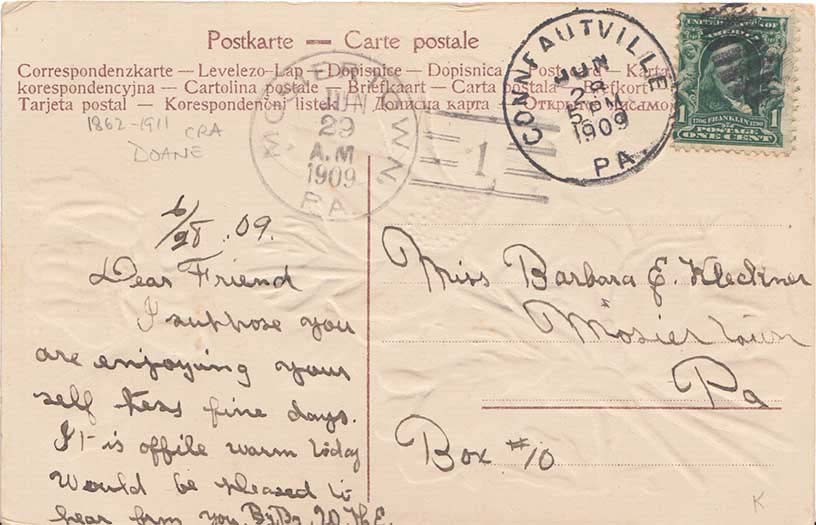 Postkarte — Carte postale
Correspondenzkarte — Levelezo-Lap — Dopisnice — Dopisnica — Post card — Karta
korespondencyjna — Cartolina postale — Briefkaart — Carta postala — Brefkort
Tarjeta postal — Korespondencni listek — Дописна карта — Открытое письмо
1862-1911 CRA
DOANE
MOSIERTOWN
JUN
29
A.M
1909
PA.
1
CONNEAUTVILLE
JUN
28
5 PM
1909
PA.
UNITED STATES OF
AMERICA
1706 FRANKLIN 1790
1 POSTAGE 1
ONE CENT
6/28 .09.
Dear Friend
I suppose you
are enjoying your
self thess fine days.
It is offile warm today
Would be pleased to
hear frm you. By By
Miss Barbara E. Kleckner
Mosiertown
Pa
Box #10
K